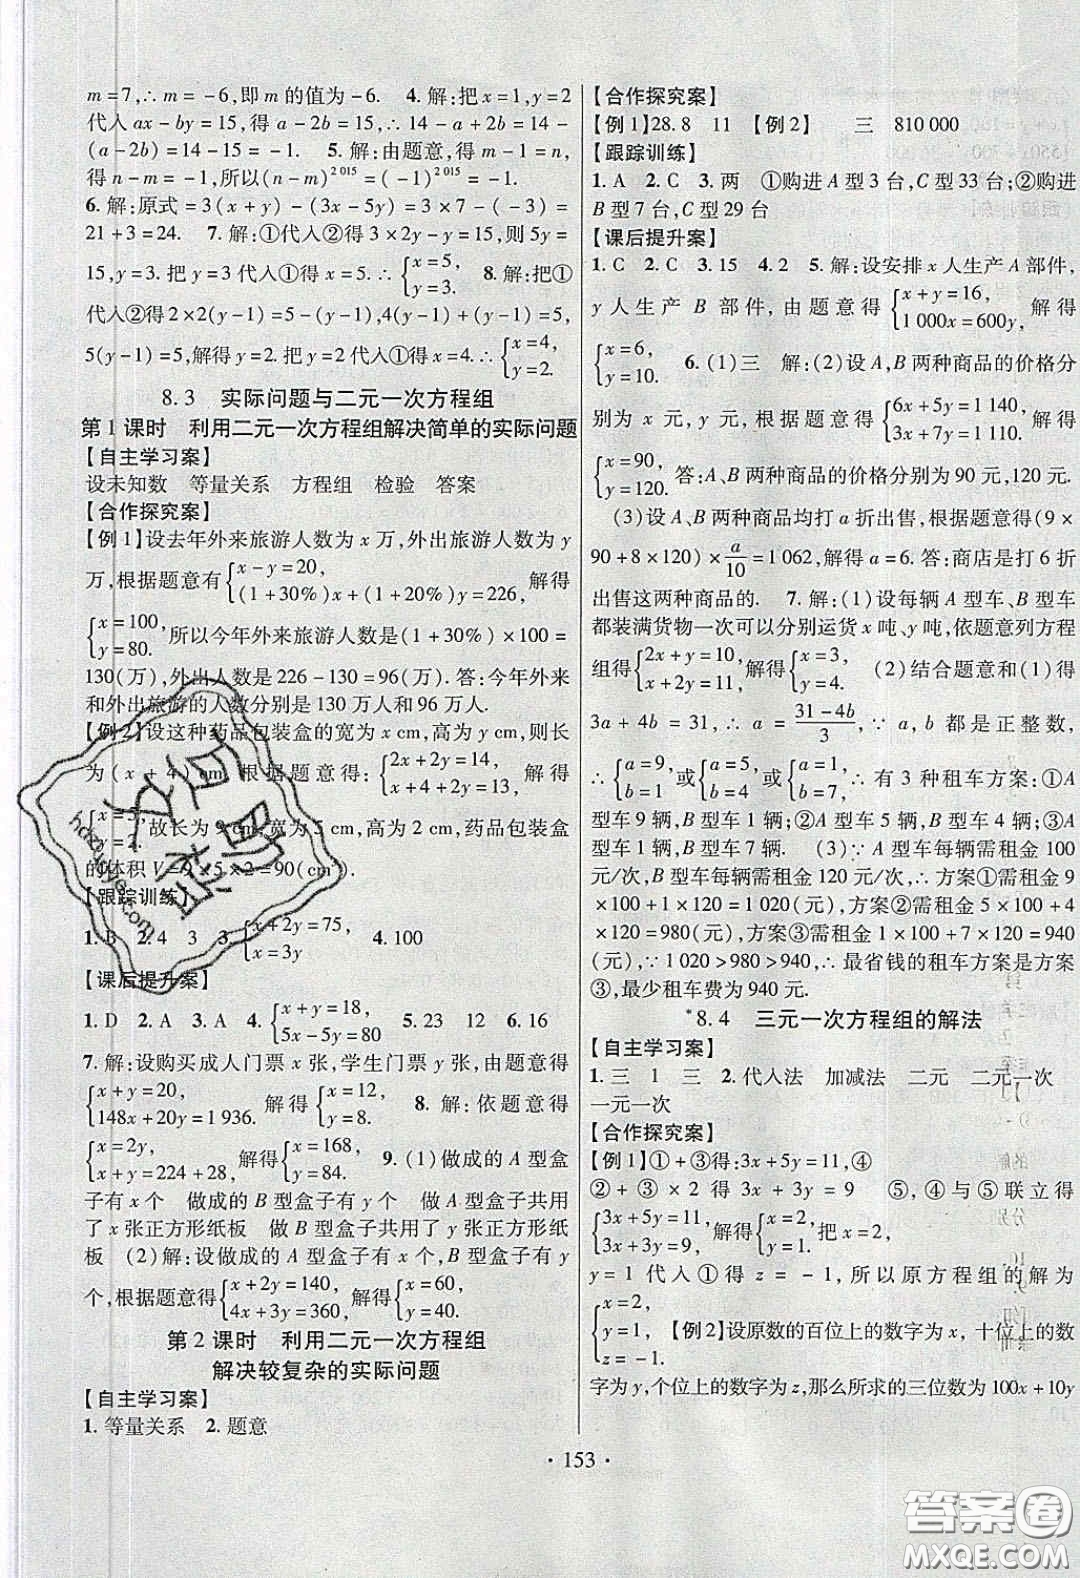 m=7,∴m=-6,即m的值为-6. 4.解:把x=1,y=2
代入ax-by=15,得a-2b=15,∴14-a+2b=14-
(a-2b)=14-15=-1. 5.解:由题意,得m-1=n,
得n-m=-1,所以(n-m)²⁰¹⁵=(-1)²⁰¹⁵=-1.
6.解:原式=3(x+y)-(3x-5y)=3×7-(-3)=
21+3=24. 7.解:①代入②得3×2y-y=15,则5y=
15,y=3.把y=3代入①得x=5.∴{x=5, y=3. 8.解:把①
代入②得2×2(y-1)=5-(y-1),4(y-1)+(y-1)=5,
5(y-1)=5,解得y=2.把y=2代入①得x=4.∴{x=4, y=2.
8.3 实际问题与二元一次方程组
第1课时 利用二元一次方程组解决简单的实际问题
【自主学习案】
设未知数 等量关系 方程组 检验 答案
【合作探究案】
【例1】设去年外来旅游人数为x万,外出旅游人数为y
万,根据题意有{x-y=20, (1+30%)x+(1+20%)y=226, 解得
{x=100, y=80. 所以今年外来旅游人数是(1+30%)×100=
130(万),外出人数是226-130=96(万).答:今年外来
和外出旅游的人数分别是130万人和96万人.
【例2】设这种药品包装盒的宽为x cm,高为y cm,则长
为(x+4)cm.根据题意得:{2x+2y=14, x+4+2y=13, 解得
{x=5, y=2. 故长为9cm,宽为5cm,高为2cm,药品包装盒
的体积V=9×5×2=90(cm³).
【跟踪训练】
1.B 2.4 3 3.{x+2y=75, x=3y 4.100
【课后提升案】
1.D 2.A 3.A 4.{x+y=18, 5x-5y=80 5.23 12 6.16
7.解:设购买成人门票x张,学生门票y张,由题意得
{x+y=20, 148x+20y=1 936. 解得{x=12, y=8. 8.解:依题意得
{x=2y, x+y=224+28, 解得{x=168, y=84. 9.(1)做成的A型盒
子有x个 做成的B型盒子有y个 做A型盒子共用
了x张正方形纸板 做B型盒子共用了y张正方形纸
板 (2)解:设做成的A型盒子有x个,B型盒子有y
个,根据题意得{x+2y=140, 4x+3y=360, 解得{x=60, y=40.
第2课时 利用二元一次方程组
解决较复杂的实际问题
【自主学习案】
1.等量关系 2.题意
【合作探究案】
【例1】28.8 11 【例2】 三 810 000
【跟踪训练】
1.A 2.C 3.两 ①购进A型3台,C型33台;②购进
B型7台,C型29台
【课后提升案】
1.C 2.C 3.15 4.2 5.解:设安排x人生产A部件,
y人生产B部件,由题意得{x+y=16, 1 000x=600y, 解得
{x=6, y=10. 6.(1)三 解:(2)设A,B两种商品的价格分
别为x元,y元,根据题意得{6x+5y=1 140, 3x+7y=1 110. 解得
{x=90, y=120. 答:A、B两种商品的价格分别为90元,120元.
(3)设A、B两种商品均打a折出售,根据题意得(9×
90+8×120)×a/10=1 062,解得a=6.答:商店是打6折
出售这两种商品的. 7.解:(1)设每辆A型车、B型车
都装满货物一次可以分别运货x吨、y吨,依题意列方程
组得{2x+y=10, x+2y=11, 解得{x=3, y=4. (2)结合题意和(1)得
3a+4b=31,∴a=(31-4b)/3,∵a,b都是正整数,
∴{a=9, b=1 或{a=5, b=4 或{a=1, b=7, ∴有3种租车方案:①A
型车9辆,B型车1辆;②A型车5辆,B型车4辆;③A
型车1辆,B型车7辆. (3)∵A型车每辆需租金100
元/次,B型车每辆需租金120元/次,∴方案①需租金9
×100+1×120=1 020(元),方案②需租金5×100+4
×120=980(元),方案③需租金1×100+7×120=940
(元),∵1 020>980>940,∴最省钱的租车方案是方案
③,最少租车费为940元.
*8.4 三元一次方程组的解法
【自主学习案】
1.三 1 三 2.代入法 加减法 二元 二元一次
一元一次
【合作探究案】
【例1】①+③得:3x+5y=11,④
②+③×2得3x+3y=9 ⑤,④与⑤联立得
{3x+5y=11, 3x+3y=9, 解得{x=2, y=1. 把x=2,
y=1代入①得z=-1,所以原方程组的解为
{x=2, y=1, z=-1. 【例2】设原数的百位上的数字为x,十位上的数
字为y,个位上的数字为z,那么所求的三位数为100x+10y
·153·
答案圈
MXQE.COM